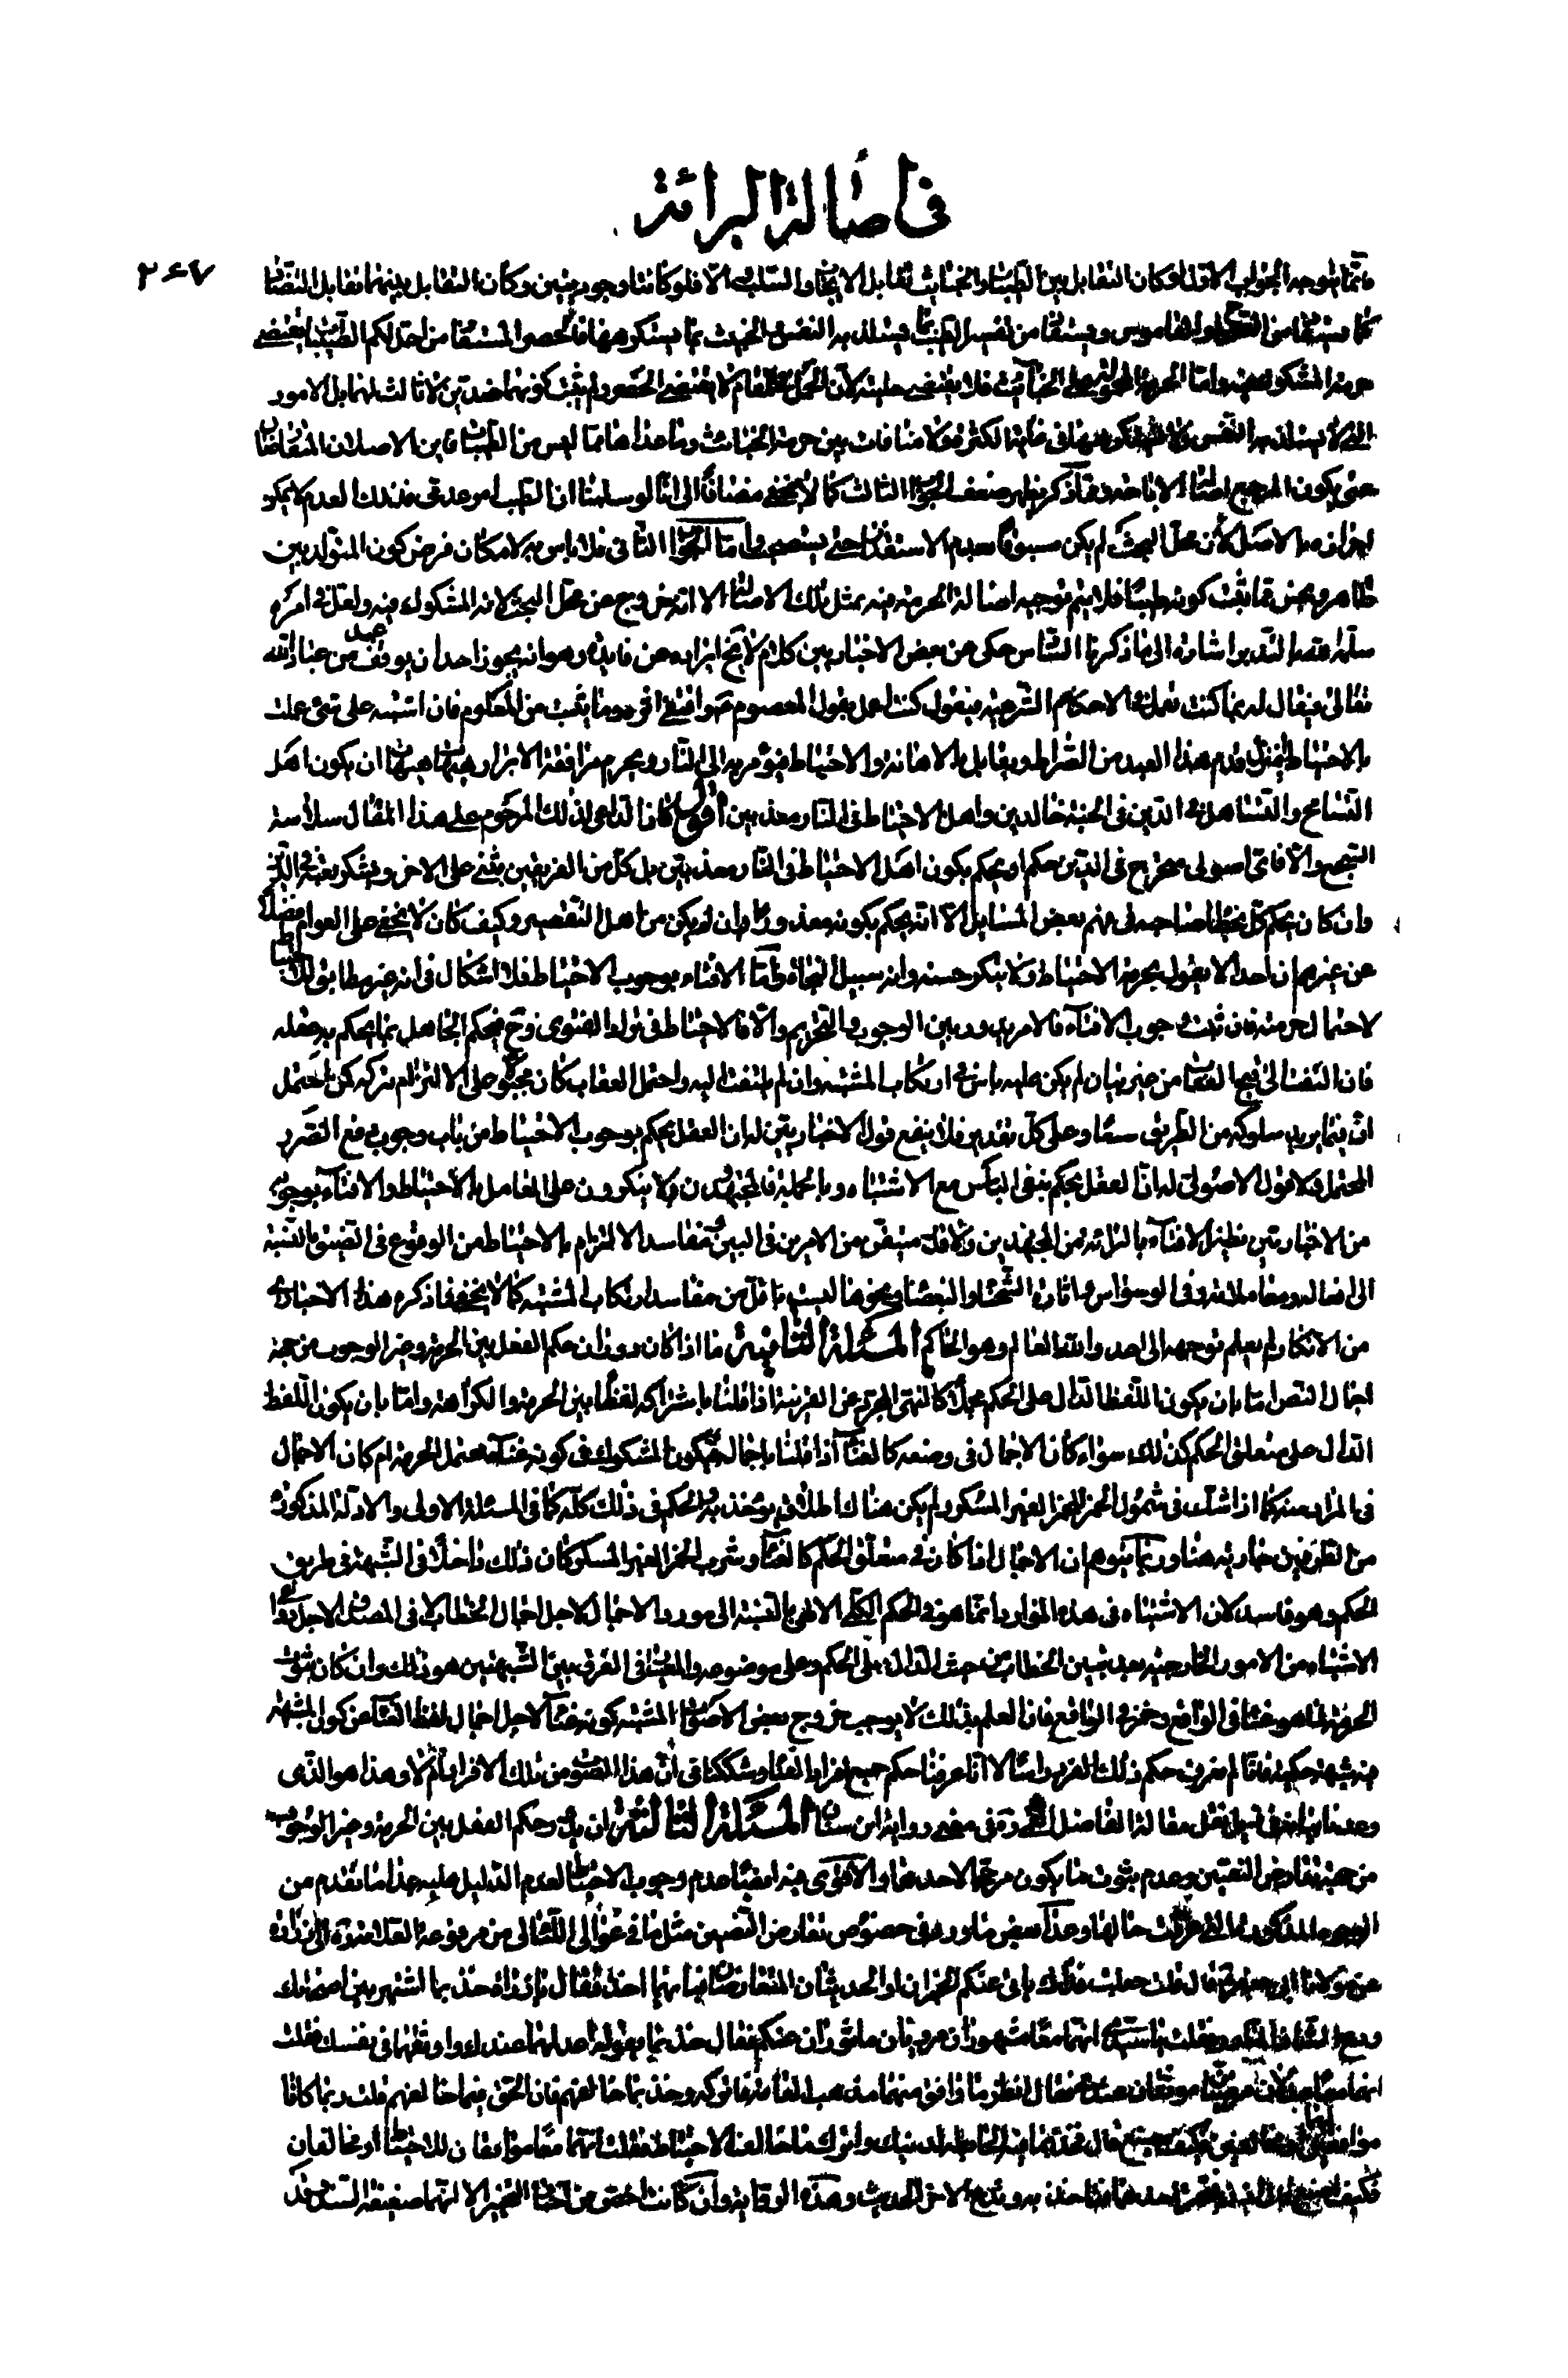 في أصالة البرائة
٢٤٧
فانما يتوجه الجواب الاول لو كان التقابل بين الطيبات والخبائث تقابل الايجاب والسلب والا فلو كانتا وجوديتين وكان التقابل بينهما تقابل التضاد
كما يستفاد من القاموس ويستفاد من تفسير الطيبات بما يستلذ به النفس والخبيث بما يستكرهها فالحصر المستفاد من احل لكم الطيبات يقتضي
حرمة المشكوك فيه واما الحرمة المحمولة على الخبائث فلا يقتضي حليته لان الحمل في المقام لا يقتضي الحصر ولم يثبت كونهما ضدين لا ثالث لهما بل الامور
التي لا يستلذ به النفس ولا تستكرهها في غاية الكثرة ولا منافات بين حرمة الخبائث وما عداها مما ليس من الطيبات فاين الاصلان المتعارضان
حتى يكون المرجع اصالة الاباحة ومما ذكر يظهر ضعف الجواب الثالث كما لا يخفى مضافا الى انا لو سلمنا ان الطيب امر عدمي فذلك العدم لا يمكن
احرازه بالاصل لان محل البحث لم يكن مسبوقا بعدم الاستقذار حتى يستصحب واما الجواب الثاني فلا باس به لامكان فرض كون المتولد بين
طاهر ونجس مما يثبت كونه طيبا فلا يتم توجيه اصالة الحرمة فيه بمثل تلك الاصالة الا انه خروج عن محل البحث لانه المشكوك فيه ولعل في امره
سلمه الله بالتدبر اشارة الى ما ذكرنا السادس حكى عن بعض الاخباريين كلام لا يخ ايراده عن فايدة وهو انه يجوز احد ان يوقف عبد من عباد الله
تعالى فيقال له بما كنت تعمل في الاحكام الشرعية فيقول كنت اعمل بقول المعصوم واقتفي اثره وما يثبت من المعلوم فان اشتبه على شئ عملت
بالاحتياط افيزل قدم هذا العبد من الصراط ويقابل بالاهانة والاحباط فيؤمر به الى النار ويحرم مرافقة الابرار هيهات هيهات ان يكون اهل
التسامح والتساهل في الدين في الجنة خالدين واهل الاحتياط في النار معذبين اقول كان الداعي لذلك المرحوم على هذا المقال سلاسة
السجع والا فاي اصولي صحيح في الدين حكم او يحكم بكون اهل الاحتياط في النار معذبين بل كل من الفريقين يثني على الاخر ويشكر سعيه في الدين
وان كان يحكم كل بخطا صاحبه في فهم بعض المسايل الا انه يحكم بكونه معذورا ان لم يكن من اهل التقصير وكيف كان لا يخفى على العوام فضلا
عن غيرهم ان احدا لا يقول بحرمة الاحتياط ولا ينكر حسنه وانه سبيل النجاة واما الافتاء بوجوب الاحتياط فلا اشكال في انه غير مطابق للاحتياط
لاحتمال حرمته فان ثبت وجوب الافتاء فالامر يدور بين الوجوب والتحريم والا فالاحتياط في ترك الفتوى وح فيحكم الجاهل بما يحكم به عقله
فان التفت الى قبح العقاب من غير بيان لم يكن عليه باس في ارتكاب المشتبه وان لم يلتفت اليه واحتمل العقاب كان مجبولا على الالتزام بتركه كمن احتمل
ان فيما يريد سلوكه من الطريق سبعا وعلى كل تقدير فلا ينفع قول الاخباريين له ان العقل يحكم بوجوب الاحتياط من باب وجوب دفع الضرر
المحتمل ولا قول الاصولي له ان العقل يحكم بنفي الباس مع الاشتباه وبالجملة فالمجتهدون لا ينكرون على العامل بالاحتياط والافتاء بوجوبه
من الاخباريين نظير الافتاء بالبرائة من المجتهدين ولا بد متيقن من الامرين في البين ومفاسد الالتزام بالاحتياط من الوقوع في الضيق بالنسبة
الى افعاله ومعاملاته وفي الوسواس واثارة الشحناء والبغضاء ونحوها ليست باقل من مفاسد ارتكاب المشتبه كما لا يخفى فما ذكره هذا الاخباري
من الانكار لم يعلم توجهه الى احد والله العالم وهو الحاكم المسئلة الثانية ما اذا كان دوران حكم الفعل بين الحرمة وغير الوجوب من جهة
اجمال النص اما بان يكون اللفظ الدال على الحكم مجملا كالنهي المجرد عن القرينة اذا قلنا باشتراكه لفظا بين الحرمة والكراهة واما بان يكون اللفظ
الدال على متعلق الحكم كذلك سواء كان الاجمال في وضعه كالغناء اذا قلنا باجماله فيكون المشكوك في كونه غناء محتمل الحرمة ام كان الاجمال
في المراد منه كما اذا شك في شمول الخمر للخمر الغير المسكر ولم يكن هناك اطلاق يؤخذ به والحكم في ذلك كله كما في المسئلة الاولى والادلة المذكورة
من الطرفين جارية هنا وربما يتوهم ان الاجمال اذا كان في متعلق الحكم كالغناء وشرب الخمر الغير المسكر كان ذلك داخلا في الشبهة في طريق
الحكم وهو فاسد لان الاشتباه في هذه الموارد انما هو في الحكم الكلي الالهي بالنسبة الى مورد الاجمال لاجل اجمال الخطاب في المصداق لاجل عروض
الاشتباه من الامور الخارجية بعد تبين الخطاب من حيث الدلالة على الحكم وعلى موضوعه والمعيار في الفرق بين الشبهتين هو ذلك وان كان ثبوت
الحرمة لما هو غناء في الواقع وخمر في الواقع فان العلم بذلك لا يوجب خروج بعض الاصوات المشتبه كونه غناء لاجل اجمال لفظ الغناء عن كون الشبهة
فيه شبهة حكمية فانا لم نعرف حكم ذلك الفرد راسا لا انا عرفنا حكم جميع افراد الغناء وشككنا في ان هذا الصوت من تلك الافراد ام لا وهذا هو الذي
وعدنا بيانه قبل نقل مقالة الفاضل ره في معنى رواية ابن سنان المسئلة الثالثة ان يدور حكم الفعل بين الحرمة وغير الوجوب
من جهة تعارض النصين وعدم ثبوت ما يكون مرجحا لاحدهما والاقوى فيه ايضا عدم وجوب الاحتياط لعدم الدليل عليه عدا ما تقدم من
الوجوه المذكورة التي عرفت حالها وعدا بعض ما ورد في خصوص تعارض النصين مثل ما في غوالي اللئالي من مرفوعة العلامة ره الى زرارة
عن مولانا ابي جعفر ع قال قلت جعلت فداك ياتي عنكم الخبران او الحديثان المتعارضان فبايهما اخذ فقال يا زرارة خذ بما اشتهر بين اصحابك
ودع الشاذ النادر فقلت يا سيدي انهما معا مشهوران مرويان ماثوران عنكم فقال خذ بما يقوله اعدلهما عندك واوثقهما في نفسك فقلت
انهما معا عدلان مرضيان موثقان عندي فقال انظر ما وافق منهما مذهب العامة فاتركه وخذ بما خالفهم فان الحق فيما خالفهم قلت ربما كانا
موافقين لهم او مخالفين فكيف اصنع قال فخذ بما فيه الحائطة لدينك واترك ما خالف الاحتياط فقلت انهما معا موافقان للاحتياط او مخالفان
فكيف اصنع قال اذن فتخير احدهما فتاخذ به وتدع الاخر الحديث وهذه الرواية وان كانت اخص من اخبار التخيير الا انها ضعيفة السند وقد